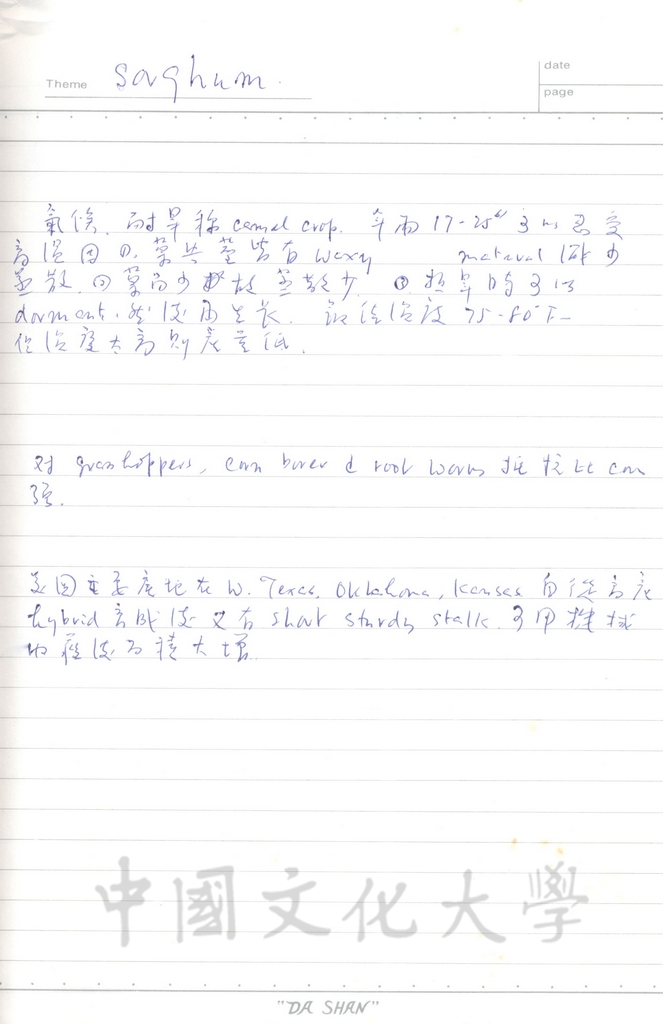 Theme Sorghum.
date
page
氣候. 耐旱称 camel crop. 年雨 17-25" 可以忍受
高温因①. 葉共莖皆有 waxy material 減少
蒸散. ②葉面少故蒸散少. ③ 旱時可以
dormant. 然後再生長. 最佳温度 75-80°F
但温度太高則产量低.
对 grasshoppers, corn borer & root worms 抵抗比 corn
强.
美国主要产地在 W. Texas, Oklahoma, Kansas 自從高产
hybrid 育成後又有 short sturdy stalk. 可用機械
收穫後面積大增.
中國文化大學
"DA SHAN"